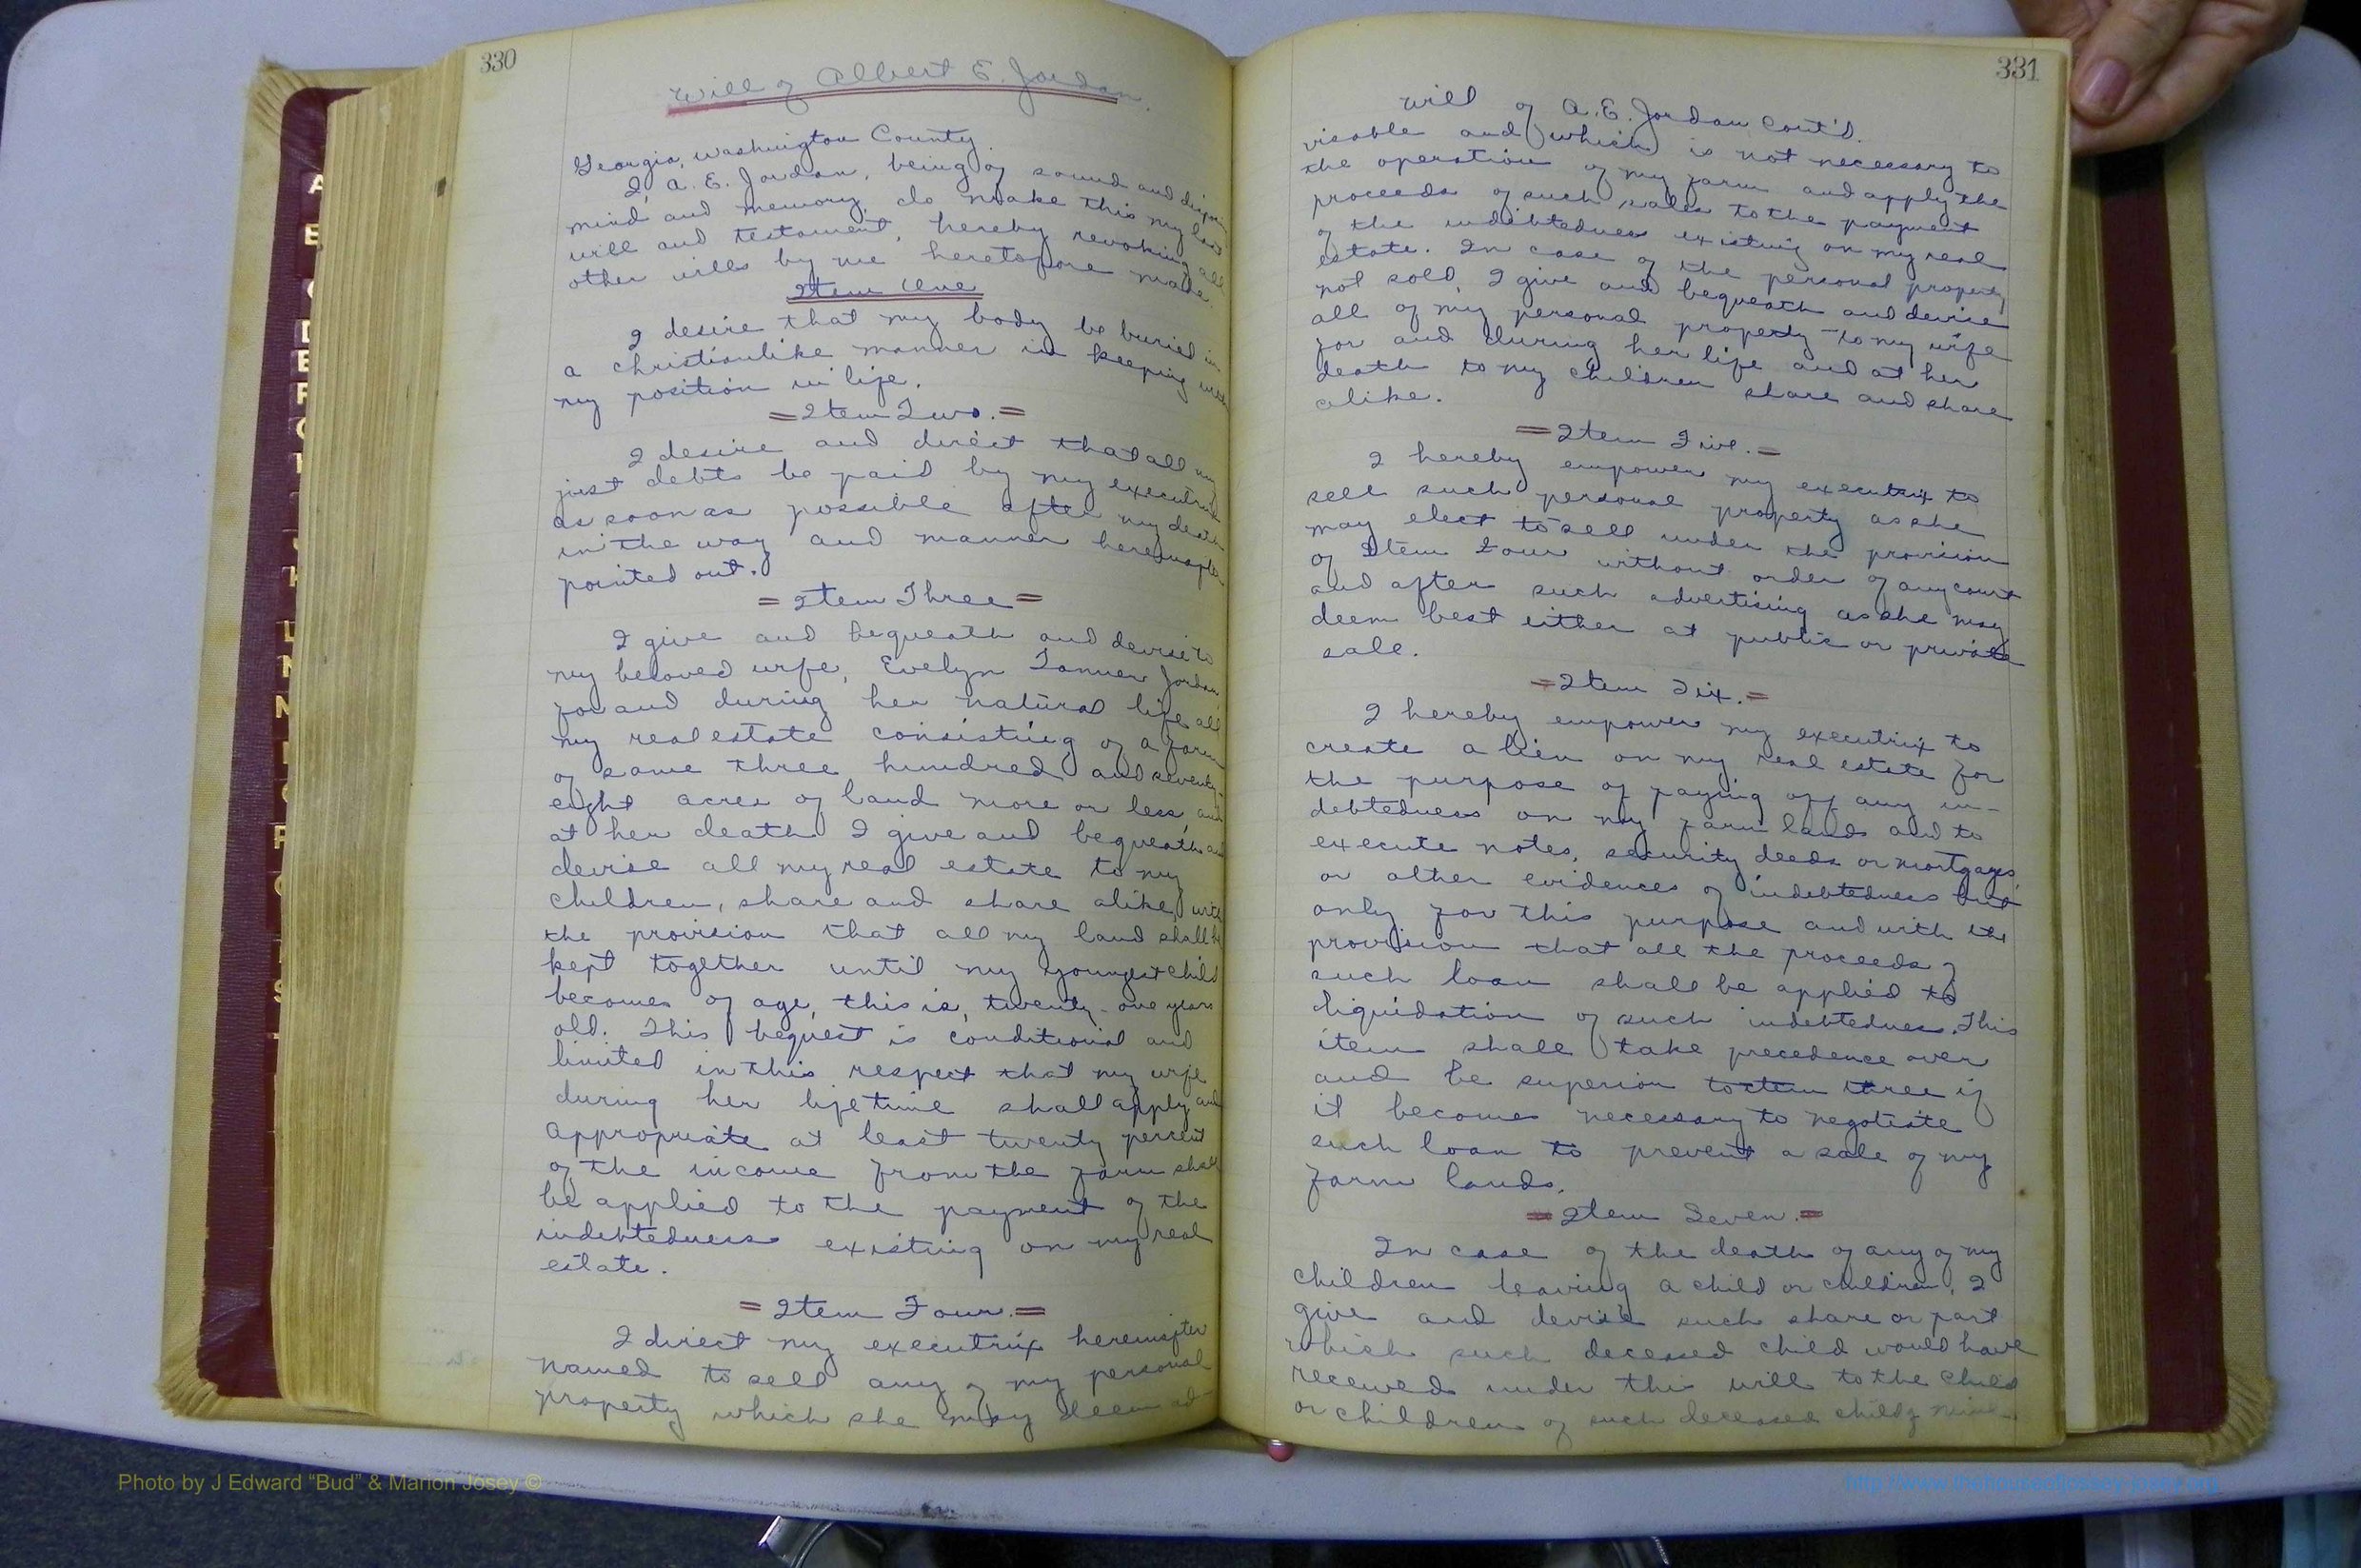 330
Will of Albert E. Jordan.
Georgia, Washington County.
I, A. E. Jordan, being of sound and
mind and memory, do make this my last
will and testament, hereby revoking all
other wills by me heretofore made.
Item One
I desire that my body be buried in
a christianlike manner in keeping with
my position in life.
=Item Two.=
I desire and direct that all my
just debts be paid by my executrix
as soon as possible after my death
in the way and manner hereinafter
pointed out.
=Item Three=
I give and bequeath and devise to
my beloved wife, Evelyn Tanner Jordan
for and during her natural life all
my real estate consisting of a farm
of some three hundred and seventy-
eight acres of land more or less, and
at her death I give and bequeath and
devise all my real estate to my
children, share and share alike, with
the provision that all my land shall be
kept together until my youngest child
becomes of age, this is, twenty-one years
old. This bequest is conditional and
limited in this respect that my wife
during her life time shall apply and
appropriate at least twenty percent
of the income from the farm shall
be applied to the payment of the
indebtedness existing on my real
estate.
=Item Four.=
I direct my executrix hereinafter
named to sell any of my personal
property which she may deem ad-
331
Will of A. E. Jordan Cont'd.
visable and which is not necessary to
the operation of my farm and apply the
proceeds of such sales to the payment
of the indebtedness existing on my real
estate. In case of the personal property
not sold, I give and bequeath and devise
all of my personal property to my wife
for and during her life and at her
death to my children share and share
alike.
=Item Five.=
I hereby empower my executrix to
sell such personal property as she
may elect to sell under the provision
of Item Four without order of any court
and after such advertising as she may
deem best either at public or private
sale.
=Item Six.=
I hereby empower my executrix to
create a lien on my real estate for
the purpose of paying off any in-
debtedness on my farm lands and to
execute notes, security deeds or mortgages,
or other evidences of indebtedness but
only for this purpose and with the
provision that all the proceeds of
such loan shall be applied to
liquidation of such indebtedness. This
item shall take precedence over
and be superior to item three if
it becomes necessary to negotiate
such loan to prevent a sale of my
farm lands.
=Item Seven.=
In case of the death of any of my
children leaving a child or children, I
give and devise such share or part
which such deceased child would have
received under this will to the child
or children of such deceased child of mine.
Photo by J Edward “Bud” & Marion Josey ©